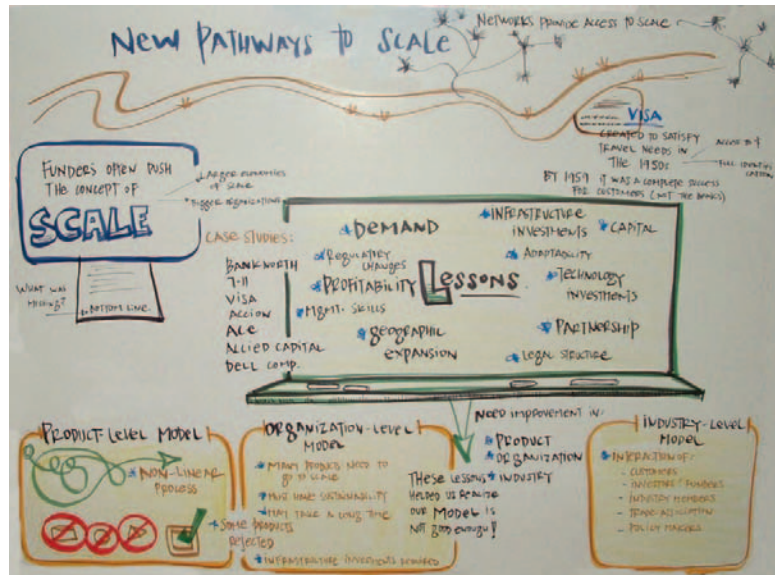 NEW PATHWAYS TO SCALE
NETWORKS PROVIDE ACCESS TO SCALE
VISA
CREATED TO SATISFY
TRAVEL NEEDS IN
THE 1950s
ACCESS TO $
FULL
BY 1959 IT WAS A COMPLETE SUCCESS
FOR CUSTOMERS (NOT THE BANKS)
FUNDERS OFTEN PUSH
THE CONCEPT OF
SCALE
LARGER ECONOMIES
OF SCALE
BIGGER ORGANIZATIONS
WHAT WAS
MISSING?
BOTTOM LINE
CASE STUDIES:
BANKNORTH
7-11
VISA
ACCION
ACE
ALLIED CAPITAL
DELL COMP.
LESSONS
DEMAND
REGULATORY
CHANGES
PROFITABILITY
MGMT. SKILLS
GEOGRAPHIC
EXPANSION
INFRASTRUCTURE
INVESTMENTS
CAPITAL
ADAPTABILITY
TECHNOLOGY
INVESTMENTS
PARTNERSHIP
LEGAL STRUCTURE
PRODUCT-LEVEL MODEL
NON-LINEAR
PROCESS
SOME PRODUCTS
REJECTED
ORGANIZATION-LEVEL
MODEL
MANY PRODUCTS NEED TO
GO TO SCALE
MUST HAVE SUSTAINABILITY
MAY TAKE A LONG TIME
INFRASTRUCTURE INVESTMENTS REQUIRED
NEED IMPROVEMENT IN:
PRODUCT
ORGANIZATION
INDUSTRY
THESE LESSONS
HELPED US REALIZE
OUR MODEL IS
NOT GOOD ENOUGH!
INDUSTRY-LEVEL
MODEL
INTERACTION OF:
- CUSTOMERS
- INVESTORS/FUNDERS
- INDUSTRY MEMBERS
- TRADE ASSOCIATION
- POLICY MAKERS